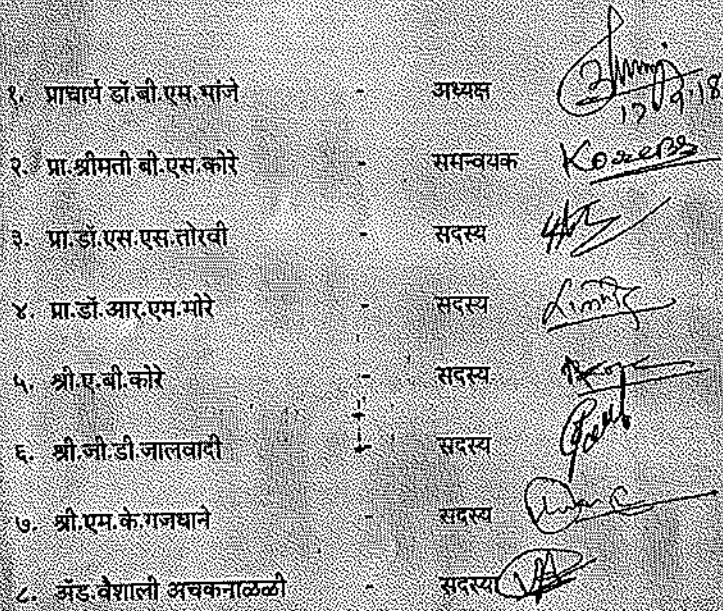 १. प्राचार्य डॉ.बी.एम.भांजे - अध्यक्ष
२. प्रा.श्रीमती बी.एस.कोरे - समन्वयक KoreBS
३. प्रा.डॉ.एस.एस.तोरवी - सदस्य
४. प्रा.डॉ.आर.एम.मोरे - सदस्य
५. श्री.ए.बी.कोरे - सदस्य
६. श्री.जी.डी.जालवादी - सदस्य
७. श्री.एम.के.गजधाने - सदस्य
८. ॲड.वैशाली अचकनाळळी - सदस्य